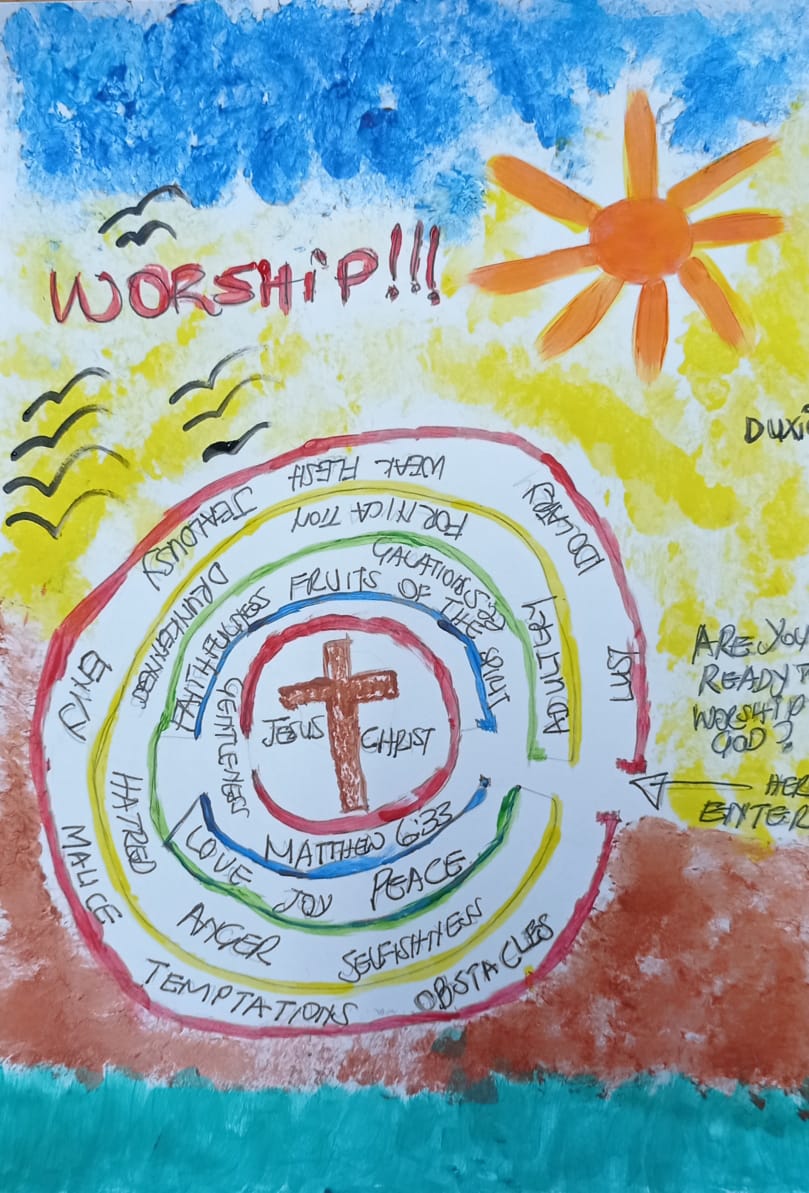 WORSHIP!!!
DUXI
ARE YOU
READY T
WORSHIP
GOD?
HER
ENTER
WEAK FLESH
IDOLARY
LUST
JEALOUSY
ENVY
MALICE
TEMPTATIONS
OBSTACLES
FORNICATION
ADULTERY
DRUNKENNESS
HATRED
ANGER
SELFISHNESS
GALATIONS 5:22
FRUITS OF THE SPIRIT
FAITHFULNESS
GENTLENESS
LOVE
JOY
PEACE
MATTHEW 6:33
JESUS CHRIST